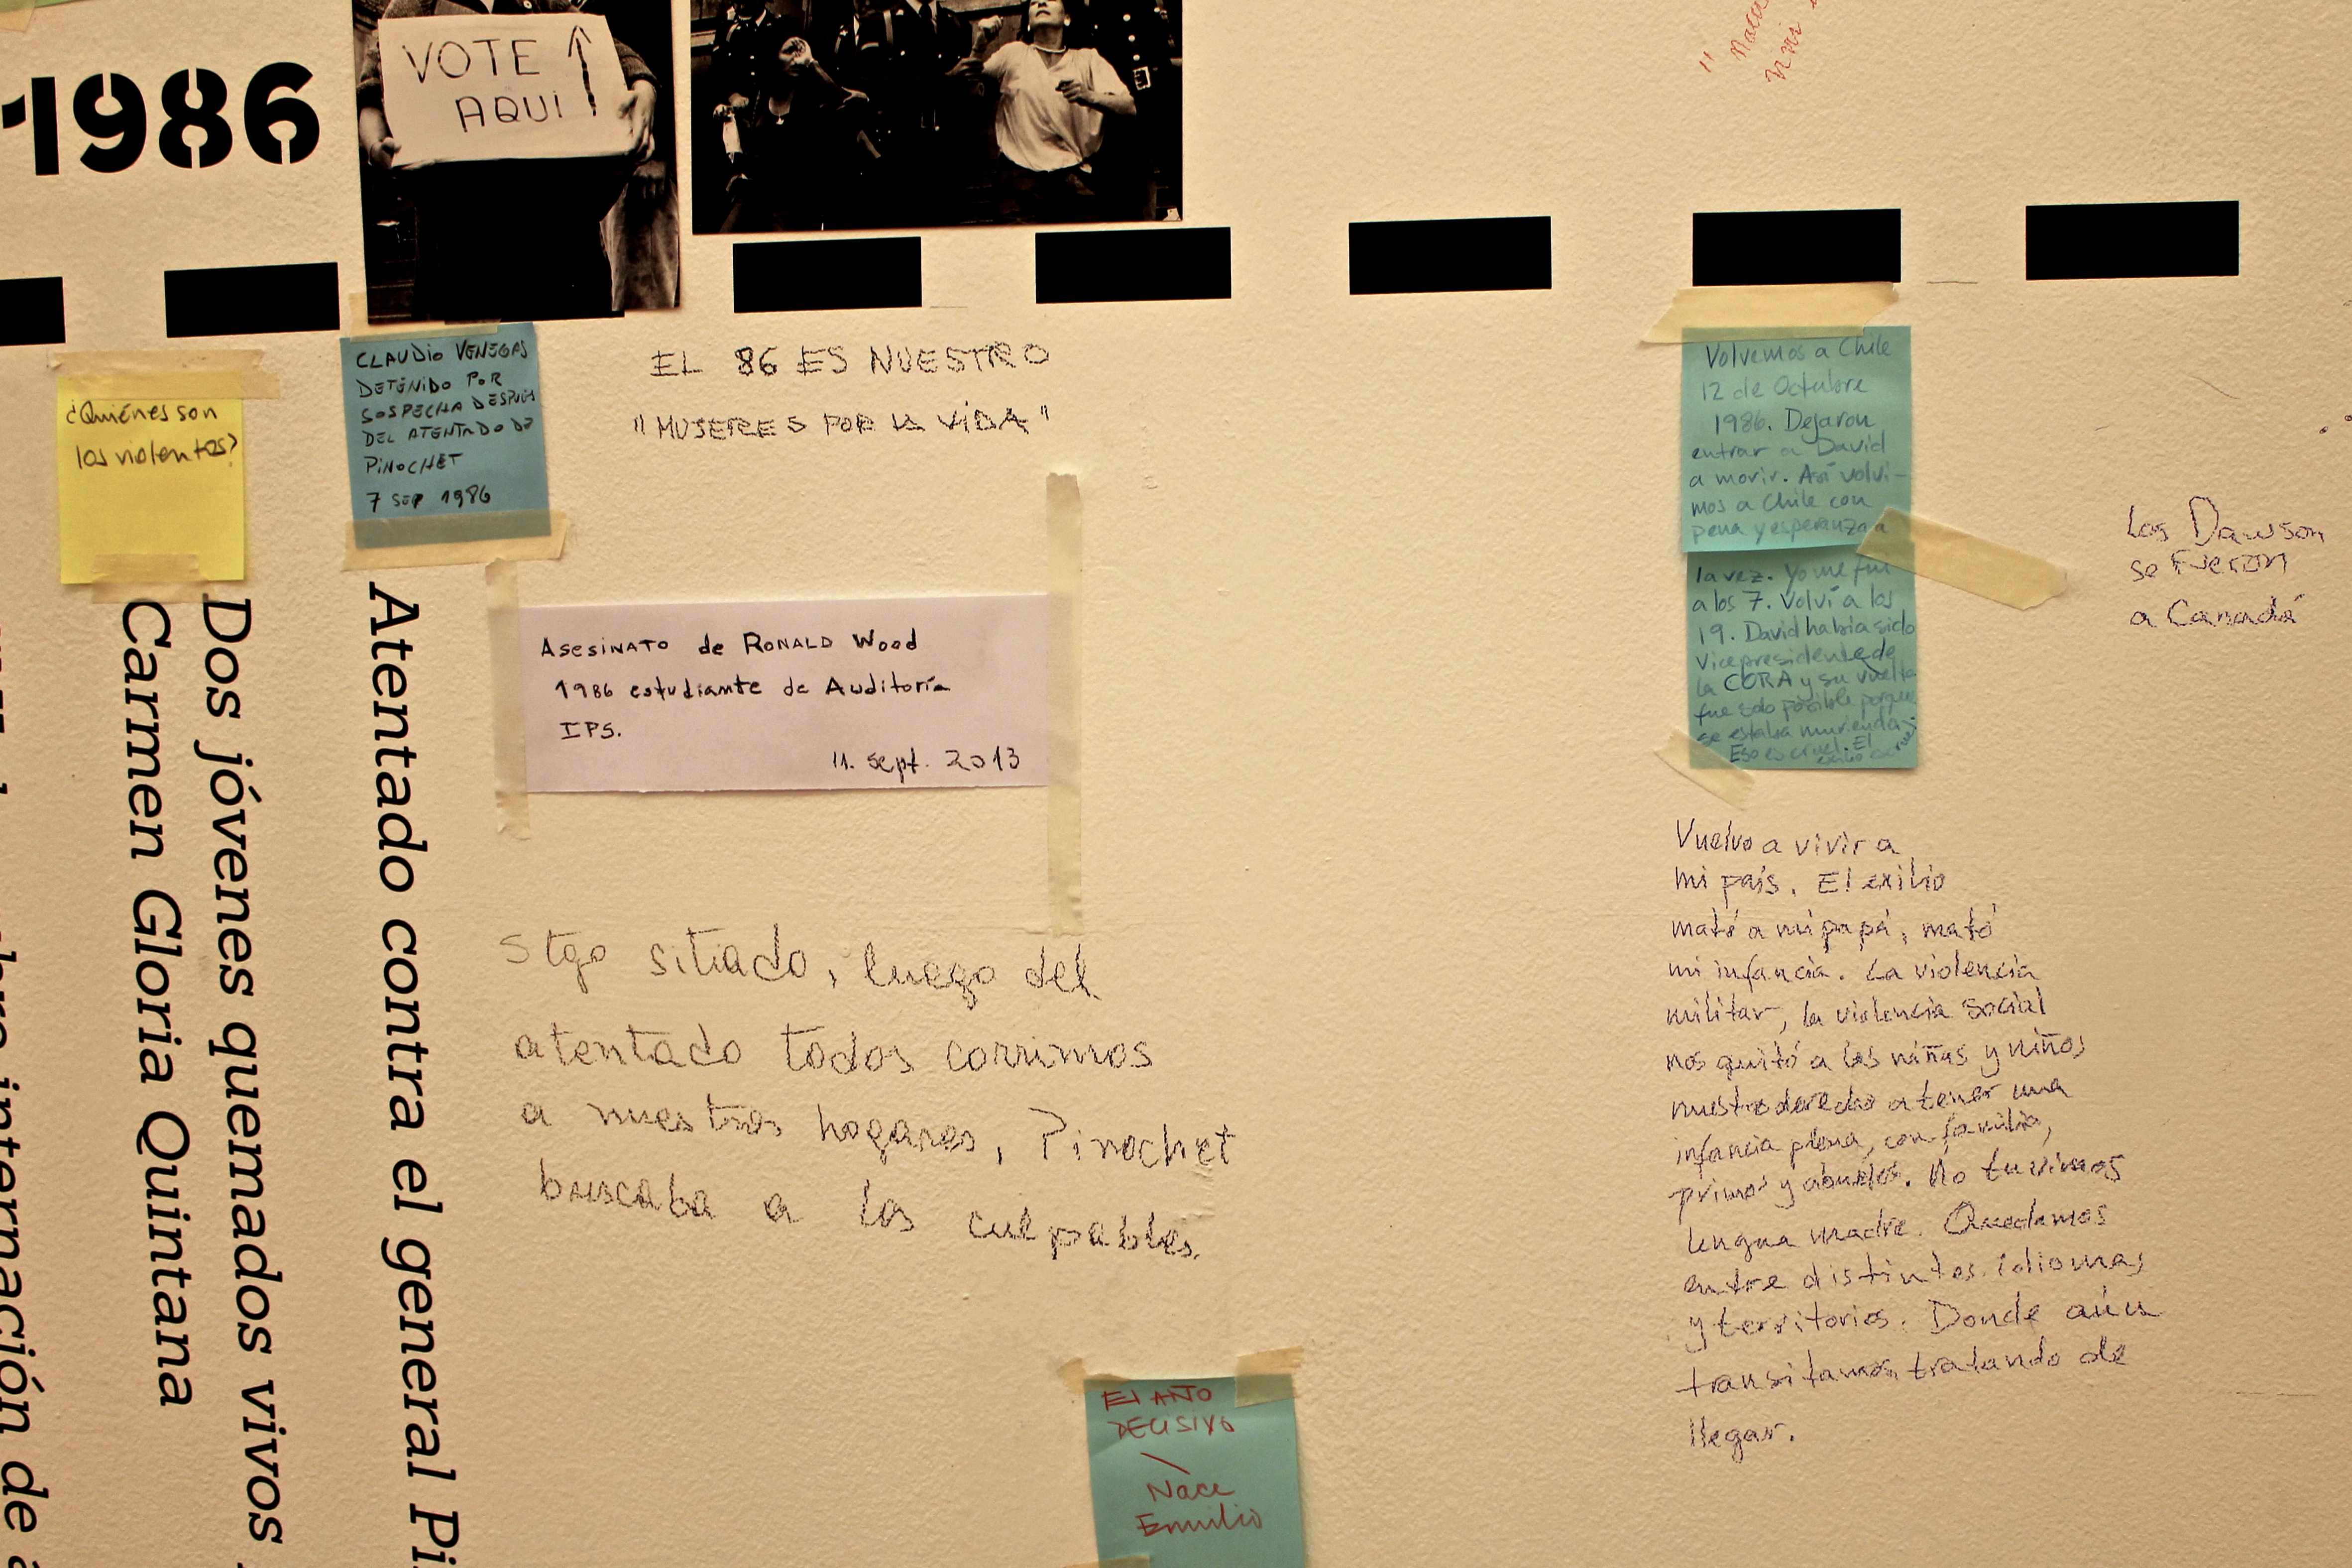 1986
VOTE
AQUI
" Nací
¿Quiénes son
los violentos?
CLAUDIO VENEGAS
DETENIDO POR
SOSPECHA DESPUÉS
DEL ATENTADO DE
PINOCHET
7 SEP 1986
EL 86 ES NUESTRO
"MUJERES POR LA VIDA"
Asesinato de Ronald Wood
1986 estudiante de Auditoría
IPS.
11. sept. 2013
Stgo sitiado, luego del
atentado todos corrimos
a nuestros hogares, Pinochet
buscaba a los culpables.
El AÑO
DECISIVO
Nace
Emilio
Volvemos a Chile
12 de Octubre
1986. Dejaron
entrar a David
a morir. Así volvi-
mos a Chile con
pena y esperanza a
la vez. Yo me fui
a los 7. Volví a los
19. David había sido
Vicepresidente de
la CORA y su vuelta
fue solo posible porque
se estaba muriendo.
Eso es cruel. El
exilio es cruel
Los Dawson
se fueron
a Canadá
Vuelvo a vivir a
mi país. El exilio
mató a mi papá, mató
mi infancia. La violencia
militar, la violencia social
nos quitó a las niñas y niños
nuestro derecho a tener una
infancia plena, con familia,
primos y abuelos. No tuvimos
lengua madre. Quedamos
entre distintos idiomas
y territorios. Donde aún
transitamos tratando de
llegar.
Atentado contra el general Pi
Dos jóvenes quemados vivos
Carmen Gloria Quintana
internación de